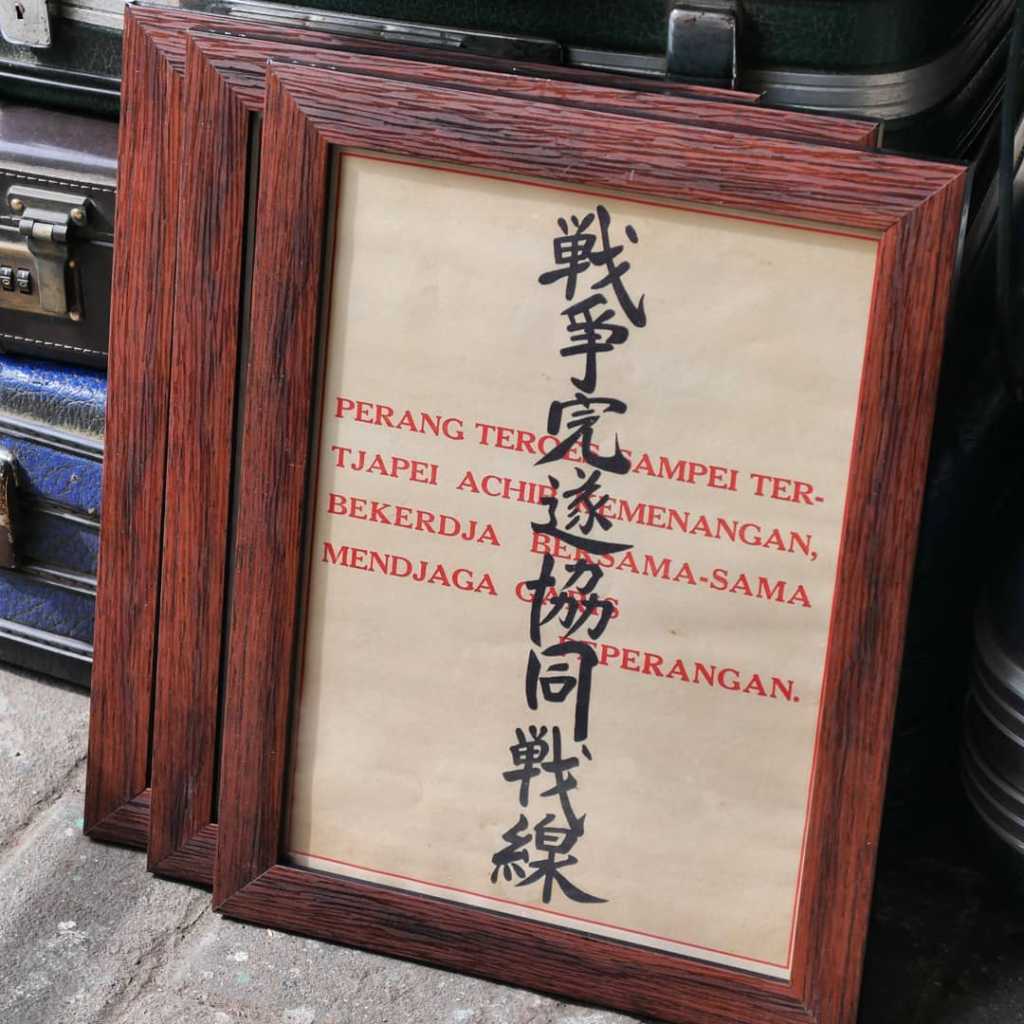 戦争完遂協同戦線
PERANG TEROES SAMPEI TER-
TJAPEI ACHIR KEMENANGAN,
BEKERDJA BERSAMA-SAMA
MENDJAGA GARIS
PEPERANGAN.